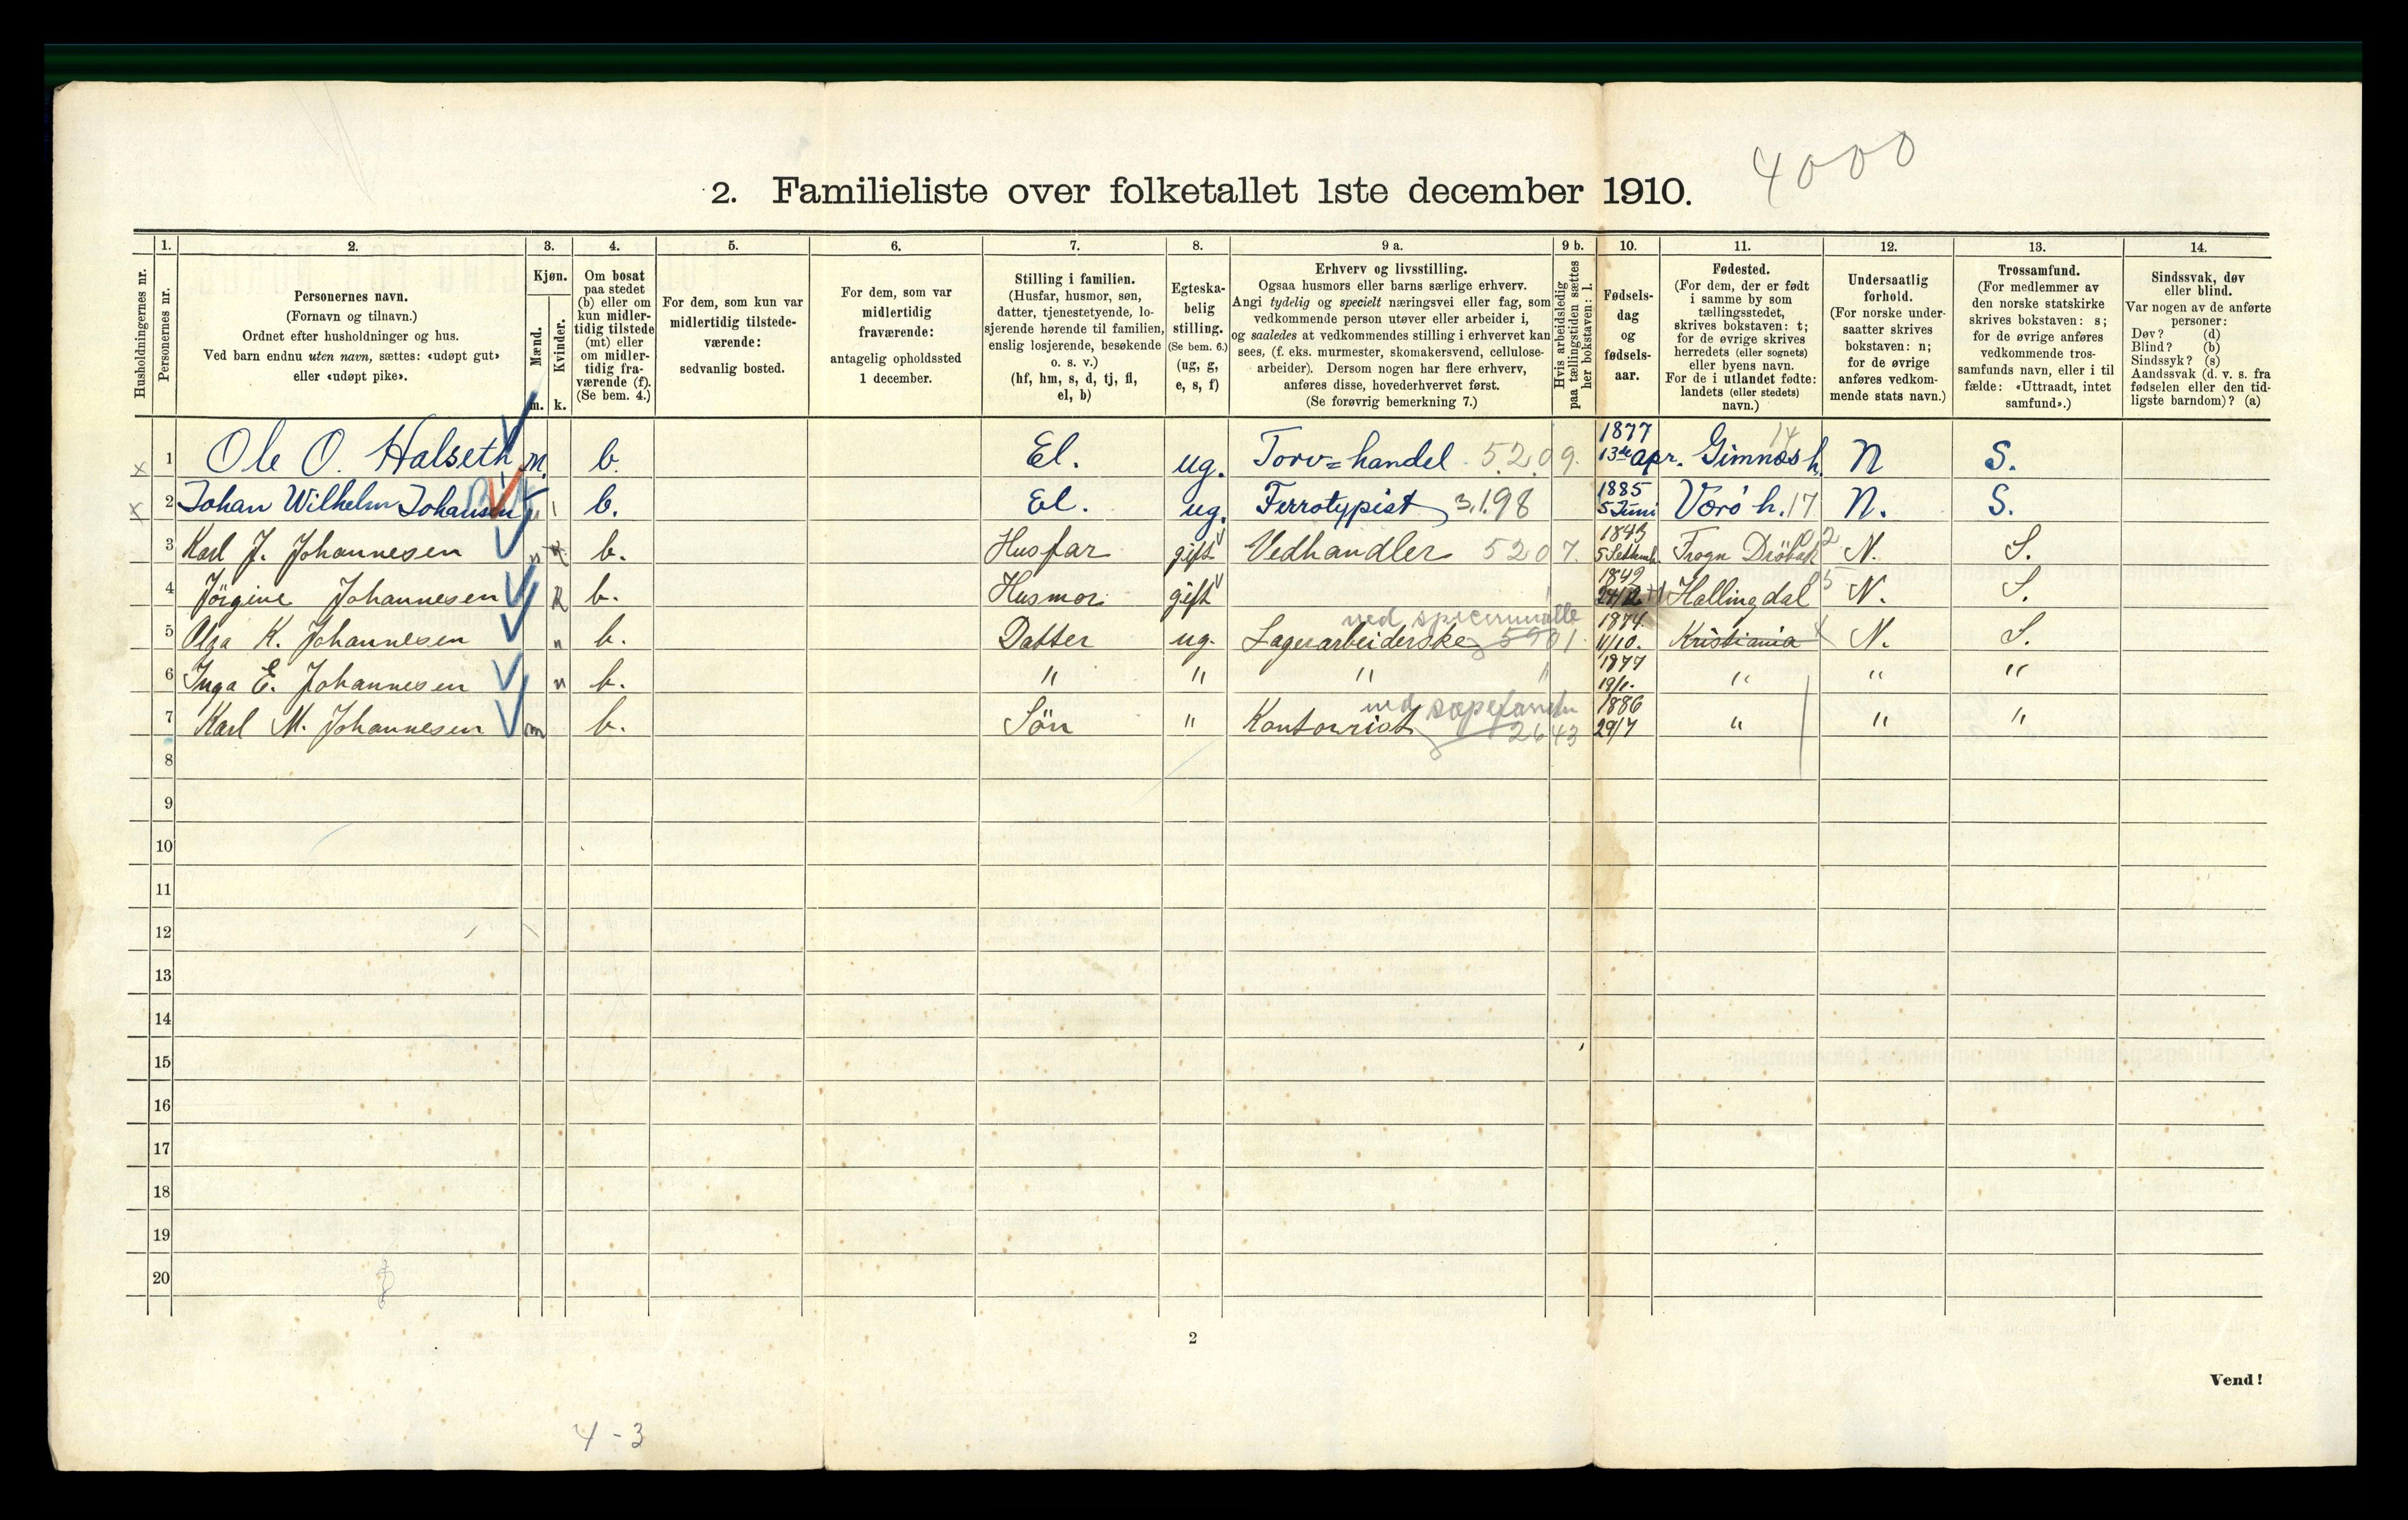 4000
2. Familieliste over folketallet 1ste december 1910.
1. 2. 3. 4. 5. 6. 7. 8. 9 a. 9 b. 10. 11. 12. 13. 14.
Husholdningernes nr.
Personernes nr.
Personernes navn.
(Fornavn og tilnavn.)
Ordnet efter husholdninger og hus.
Ved barn endnu uten navn, sættes: «udøpt gut»
eller «udøpt pike».
Kjøn.
Mænd.
Kvinder.
m. k.
Om bosat
paa stedet
(b) eller om
kun midler-
tidig tilstede
(mt) eller
om midler-
tidig fra-
værende (f).
(Se bem. 4.)
For dem, som kun var
midlertidig tilstede-
værende:
sedvanlig bosted.
For dem, som var
midlertidig
fraværende:
antagelig opholdssted
1 december.
Stilling i familien.
(Husfar, husmor, søn,
datter, tjenestetyende, lo-
sjerende hørende til familien,
enslig losjerende, besøkende
o. s. v.)
(hf, hm, s, d, tj, fl,
el, b)
Egteska-
belig
stilling.
(Se bem. 6.)
(ug, g,
e, s, f)
Erhverv og livsstilling.
Ogsaa husmors eller barns særlige erhverv.
Angi tydelig og specielt næringsvei eller fag, som
vedkommende person utøver eller arbeider i,
og saaledes at vedkommendes stilling i erhvervet kan
sees, (f. eks. murmester, skomakersvend, cellulose-
arbeider). Dersom nogen har flere erhverv,
anføres disse, hovederhvervet først.
(Se forøvrig bemerkning 7.)
Hvis arbeidsledig
paa tællingstiden sættes
her bokstaven: l.
Fødsels-
dag
og
fødsels-
aar.
Fødested.
(For dem, der er født
i samme by som
tællingsstedet,
skrives bokstaven: t;
for de øvrige skrives
herredets (eller sognets)
eller byens navn.
For de i utlandet fødte:
landets (eller stedets)
navn.)
Undersaatlig
forhold.
(For norske under-
saatter skrives
bokstaven: n;
for de øvrige
anføres vedkom-
mende stats navn.)
Trossamfund.
(For medlemmer av
den norske statskirke
skrives bokstaven: s;
for de øvrige anføres
vedkommende tros-
samfunds navn, eller i til
fælde: «Uttraadt, intet
samfund».)
Sindssvak, døv
eller blind.
Var nogen av de anførte
personer:
Døv? (d)
Blind? (b)
Sindssyk? (s)
Aandssvak (d. v. s. fra
fødselen eller den tid-
ligste barndom)? (a)
x 1 Ole O. Halseth m. b. El. ug. Torv=handel 5209. 1877 13de apr. Gimnæs h. 14 N S.
x 2 Johan Wilhelm Johansen b. El. ug. Ferrotypist 3198 1885 5 Juni Værö h. 17 N. S.
3 Karl J. Johannesen b. Husfar gift Vedhandler 5207. 1843 5 Septemb. Frogn Dröbak 2 N. S.
4 Jörgine Johannesen k b. Husmor gift 1849 24/12 Hallingdal 5 N. S.
5 Olga K. Johannesen " b. Datter ug. Lagerarbeiderske 5901 1874 11/10. Kristiania t N. S.
6 Inga E. Johannesen " b. " " " " 1877 19/1. " " "
7 Karl M. Johannesen m b. Sön " Kontorist 2643 1886 29/7 " " "
8
9
10
11
12
13
14
15
16
17
18
19
20
2
Vend!
4-3